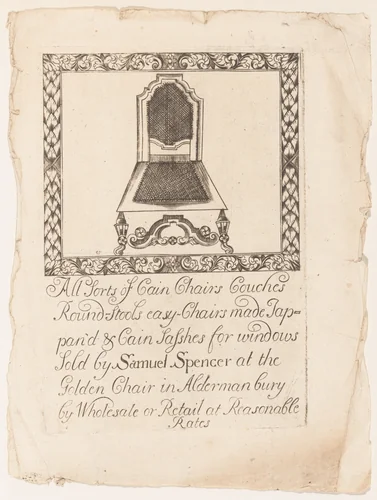 All Sorts of Cain Chairs Couches
Round-stools easy-Chairs made Jap=
pan'd & Cain Saſshes for windows
Sold by Samuel Spencer at the
Golden Chair in Alderman bury
by Wholesale or Retail at Reasonable
Rates